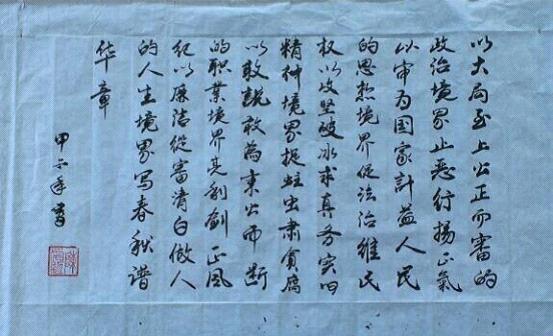 以大局至上公正而審的
政治境界止恶行揚正氣
以审为国家计益人民
的思想境界促法治維民
权以攻坚破冰求真务实的
精神境界捉蛀虫肃貪腐
以敢説敢为秉公而断
的职業境界亮利劍正風
纪以廉洁從審清白做人
的人生境界写春秋谱
华章
甲午年